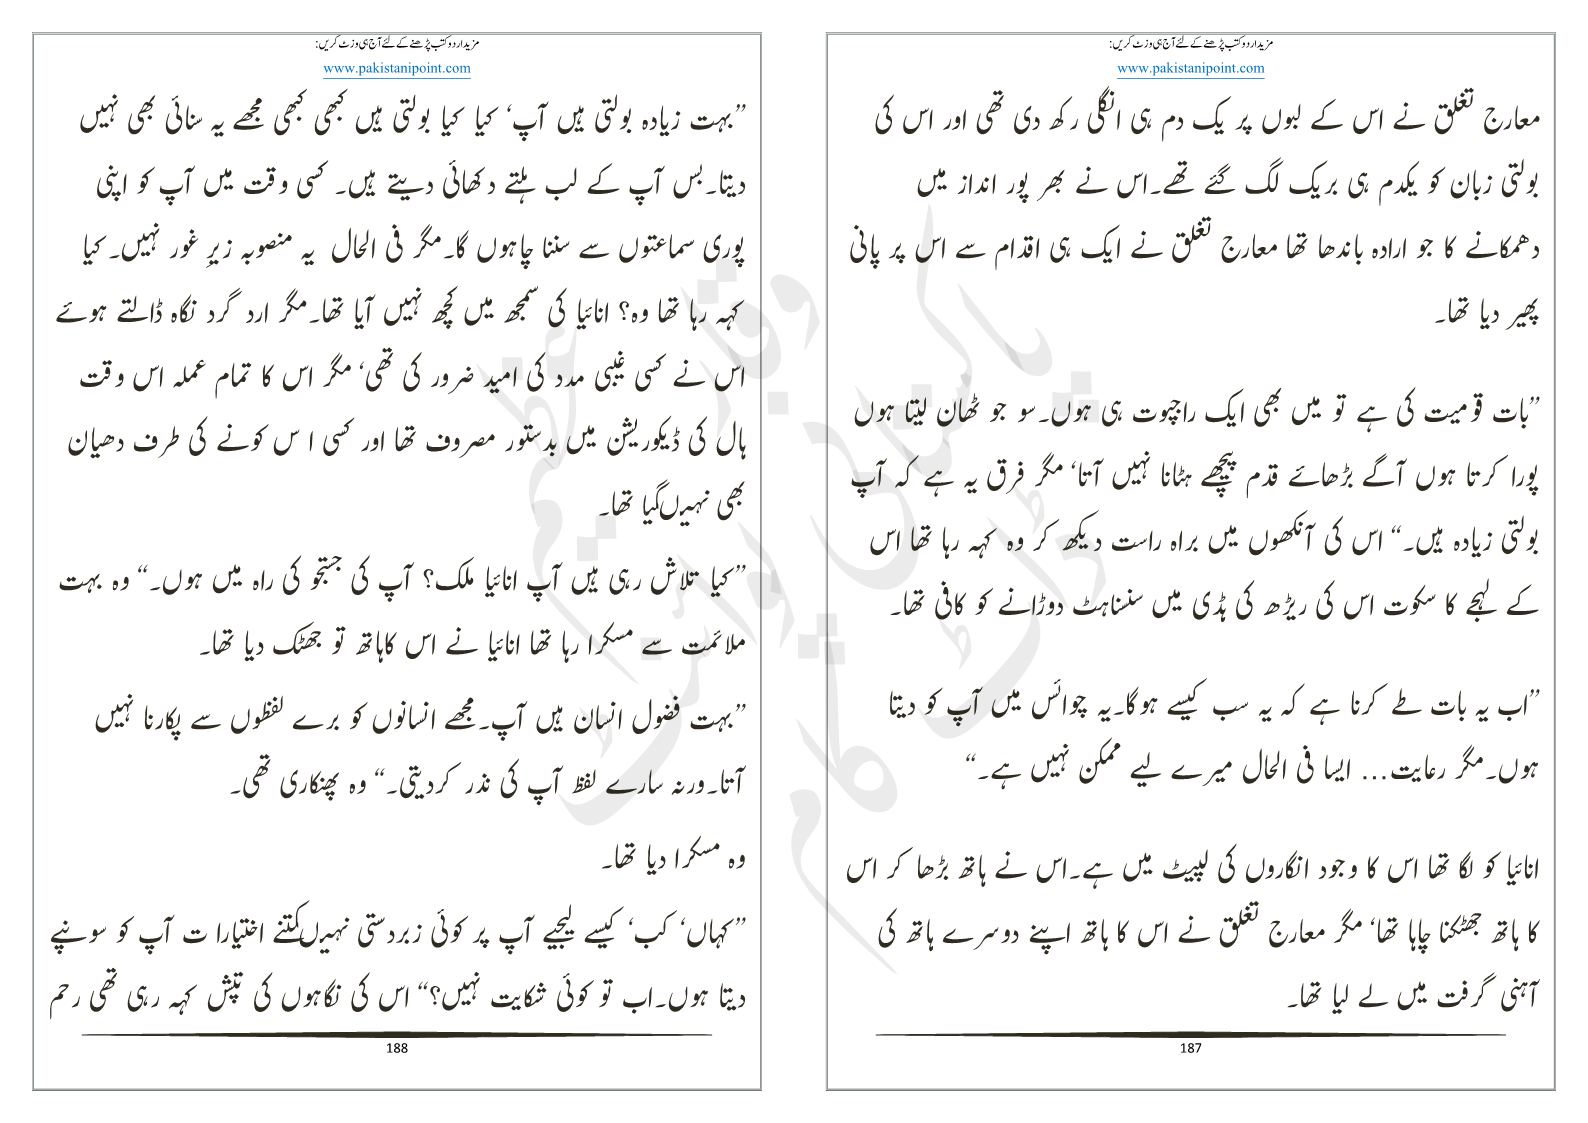 مزید اردو کتب پڑھنے کے لئے آج ہی وزٹ کریں:
www.pakistanipoint.com
معارج تغلق نے اس کے لبوں پر یک دم ہی انگلی رکھ دی تھی اور اس کی
بولتی زبان کو یکدم ہی بریک لگ گئے تھے۔اس نے بھر پور انداز میں
دھمکانے کا جو ارادہ باندھا تھا معارج تغلق نے ایک ہی اقدام سے اس پر پانی
پھیر دیا تھا۔
”بات قومیت کی ہے تو میں بھی ایک راجپوت ہی ہوں۔سو جو ٹھان لیتا ہوں
پورا کرتا ہوں آگے بڑھائے قدم پیچھے ہٹانا نہیں آتا‘ مگر فرق یہ ہے کہ آپ
بولتی زیادہ ہیں۔“ اس کی آنکھوں میں براہ راست دیکھ کر وہ کہہ رہا تھا اس
کے لہجے کا سکوت اس کی ریڑھ کی ہڈی میں سنسناہٹ دوڑانے کو کافی تھا۔
”اب یہ بات طے کرنا ہے کہ یہ سب کیسے ہوگا۔یہ چوائس میں آپ کو دیتا
ہوں۔مگر رعایت... ایسا فی الحال میرے لیے ممکن نہیں ہے۔“
انائیا کو لگا تھا اس کا وجود انگاروں کی لپیٹ میں ہے۔اس نے ہاتھ بڑھا کر اس
کا ہاتھ جھٹکنا چاہا تھا‘ مگر معارج تغلق نے اس کا ہاتھ اپنے دوسرے ہاتھ کی
آہنی گرفت میں لے لیا تھا۔
187
مزید اردو کتب پڑھنے کے لئے آج ہی وزٹ کریں:
www.pakistanipoint.com
”بہت زیادہ بولتی ہیں آپ‘ کیا کیا بولتی ہیں کبھی کبھی مجھے یہ سنائی بھی نہیں
دیتا۔بس آپ کے لب ہلتے دکھائی دیتے ہیں۔ کسی وقت میں آپ کو اپنی
پوری سماعتوں سے سننا چاہوں گا۔مگر فی الحال یہ منصوبہ زیرِ غور نہیں۔ کیا
کہہ رہا تھا وہ؟ انائیا کی سمجھ میں کچھ نہیں آیا تھا۔مگر ارد گرد نگاہ ڈالتے ہوئے
اس نے کسی غیبی مدد کی امید ضرور کی تھی‘ مگر اس کا تمام عملہ اس وقت
ہال کی ڈیکوریشن میں بدستور مصروف تھا اور کسی ا س کونے کی طرف دھیان
بھی نہیں گیا تھا۔
”کیا تلاش رہی ہیں آپ انائیا ملک؟ آپ کی جستجو کی راہ میں ہوں۔“ وہ بہت
ملائمت سے مسکرا رہا تھا انائیا نے اس کاہاتھ تو جھٹک دیا تھا۔
”بہت فضول انسان ہیں آپ۔مجھے انسانوں کو برے لفظوں سے پکارنا نہیں
آتا۔ورنہ سارے لفظ آپ کی نذر کردیتی۔“ وہ پھنکاری تھی۔
وہ مسکرا دیا تھا۔
”کہاں‘ کب‘ کیسے لیجیے آپ پر کوئی زبردستی نہیں کتنے اختیارا ت آپ کو سونپے
دیتا ہوں۔اب تو کوئی شکایت نہیں؟“ اس کی نگاہوں کی تپش کہہ رہی تھی رحم
188
پاکستانی پوائنٹ
وقار عظیم
ڈاٹ کام